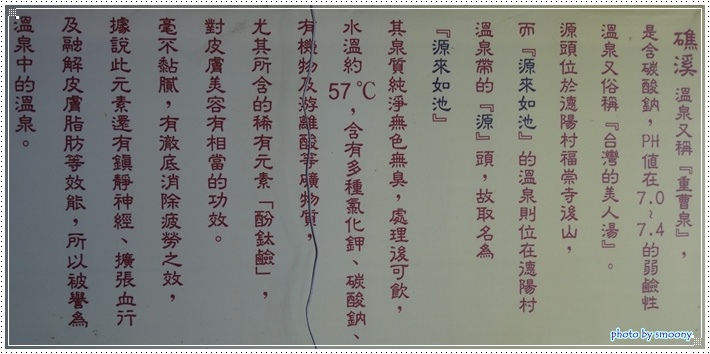 礁溪 溫泉又稱『重曹泉』，
是含碳酸鈉，PH值在7.0~7.4的弱鹼性
溫泉又俗稱『台灣的美人湯』。
源頭位於德陽村福崇寺後山，
而『源來如池』的溫泉則位在德陽村
溫泉帶的『源』頭，故取名為
『源來如池』
其泉質純淨無色無臭，處理後可飲，
水溫約57℃，含有多種氯化鉀、碳酸鈉、
有機物及游離酸等礦物質，
尤其所含的稀有元素「酚鈦鹼」，
對皮膚美容有相當的功效。
毫不黏膩，有澈底消除疲勞之效，
據說此元素還有鎮靜神經、擴張血行
及融解皮膚脂肪等效能，所以被譽為
溫泉中的溫泉。
photo by smoony